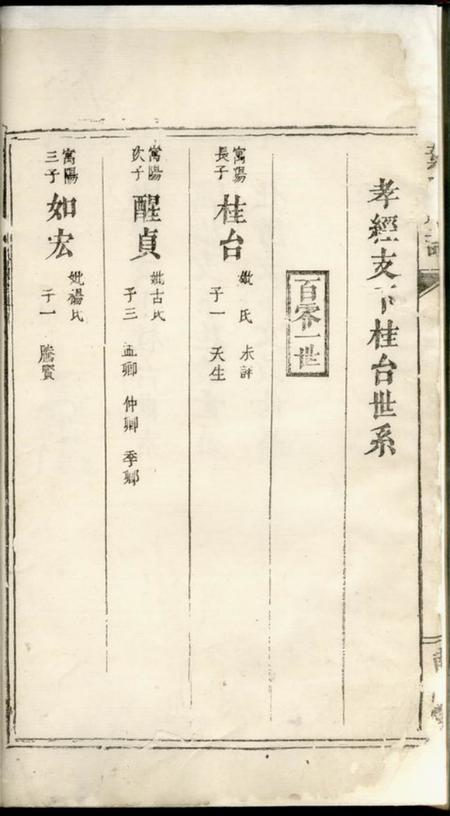 孝經支下桂台世系
百零一世
寓陽長子
桂台
妣氏未詳
子一 天生
寓陽次子
醒貞
妣古氏
子三 孟卿 仲卿 季卿
寓陽三子
如宏
妣楊氏
子一 騰賢